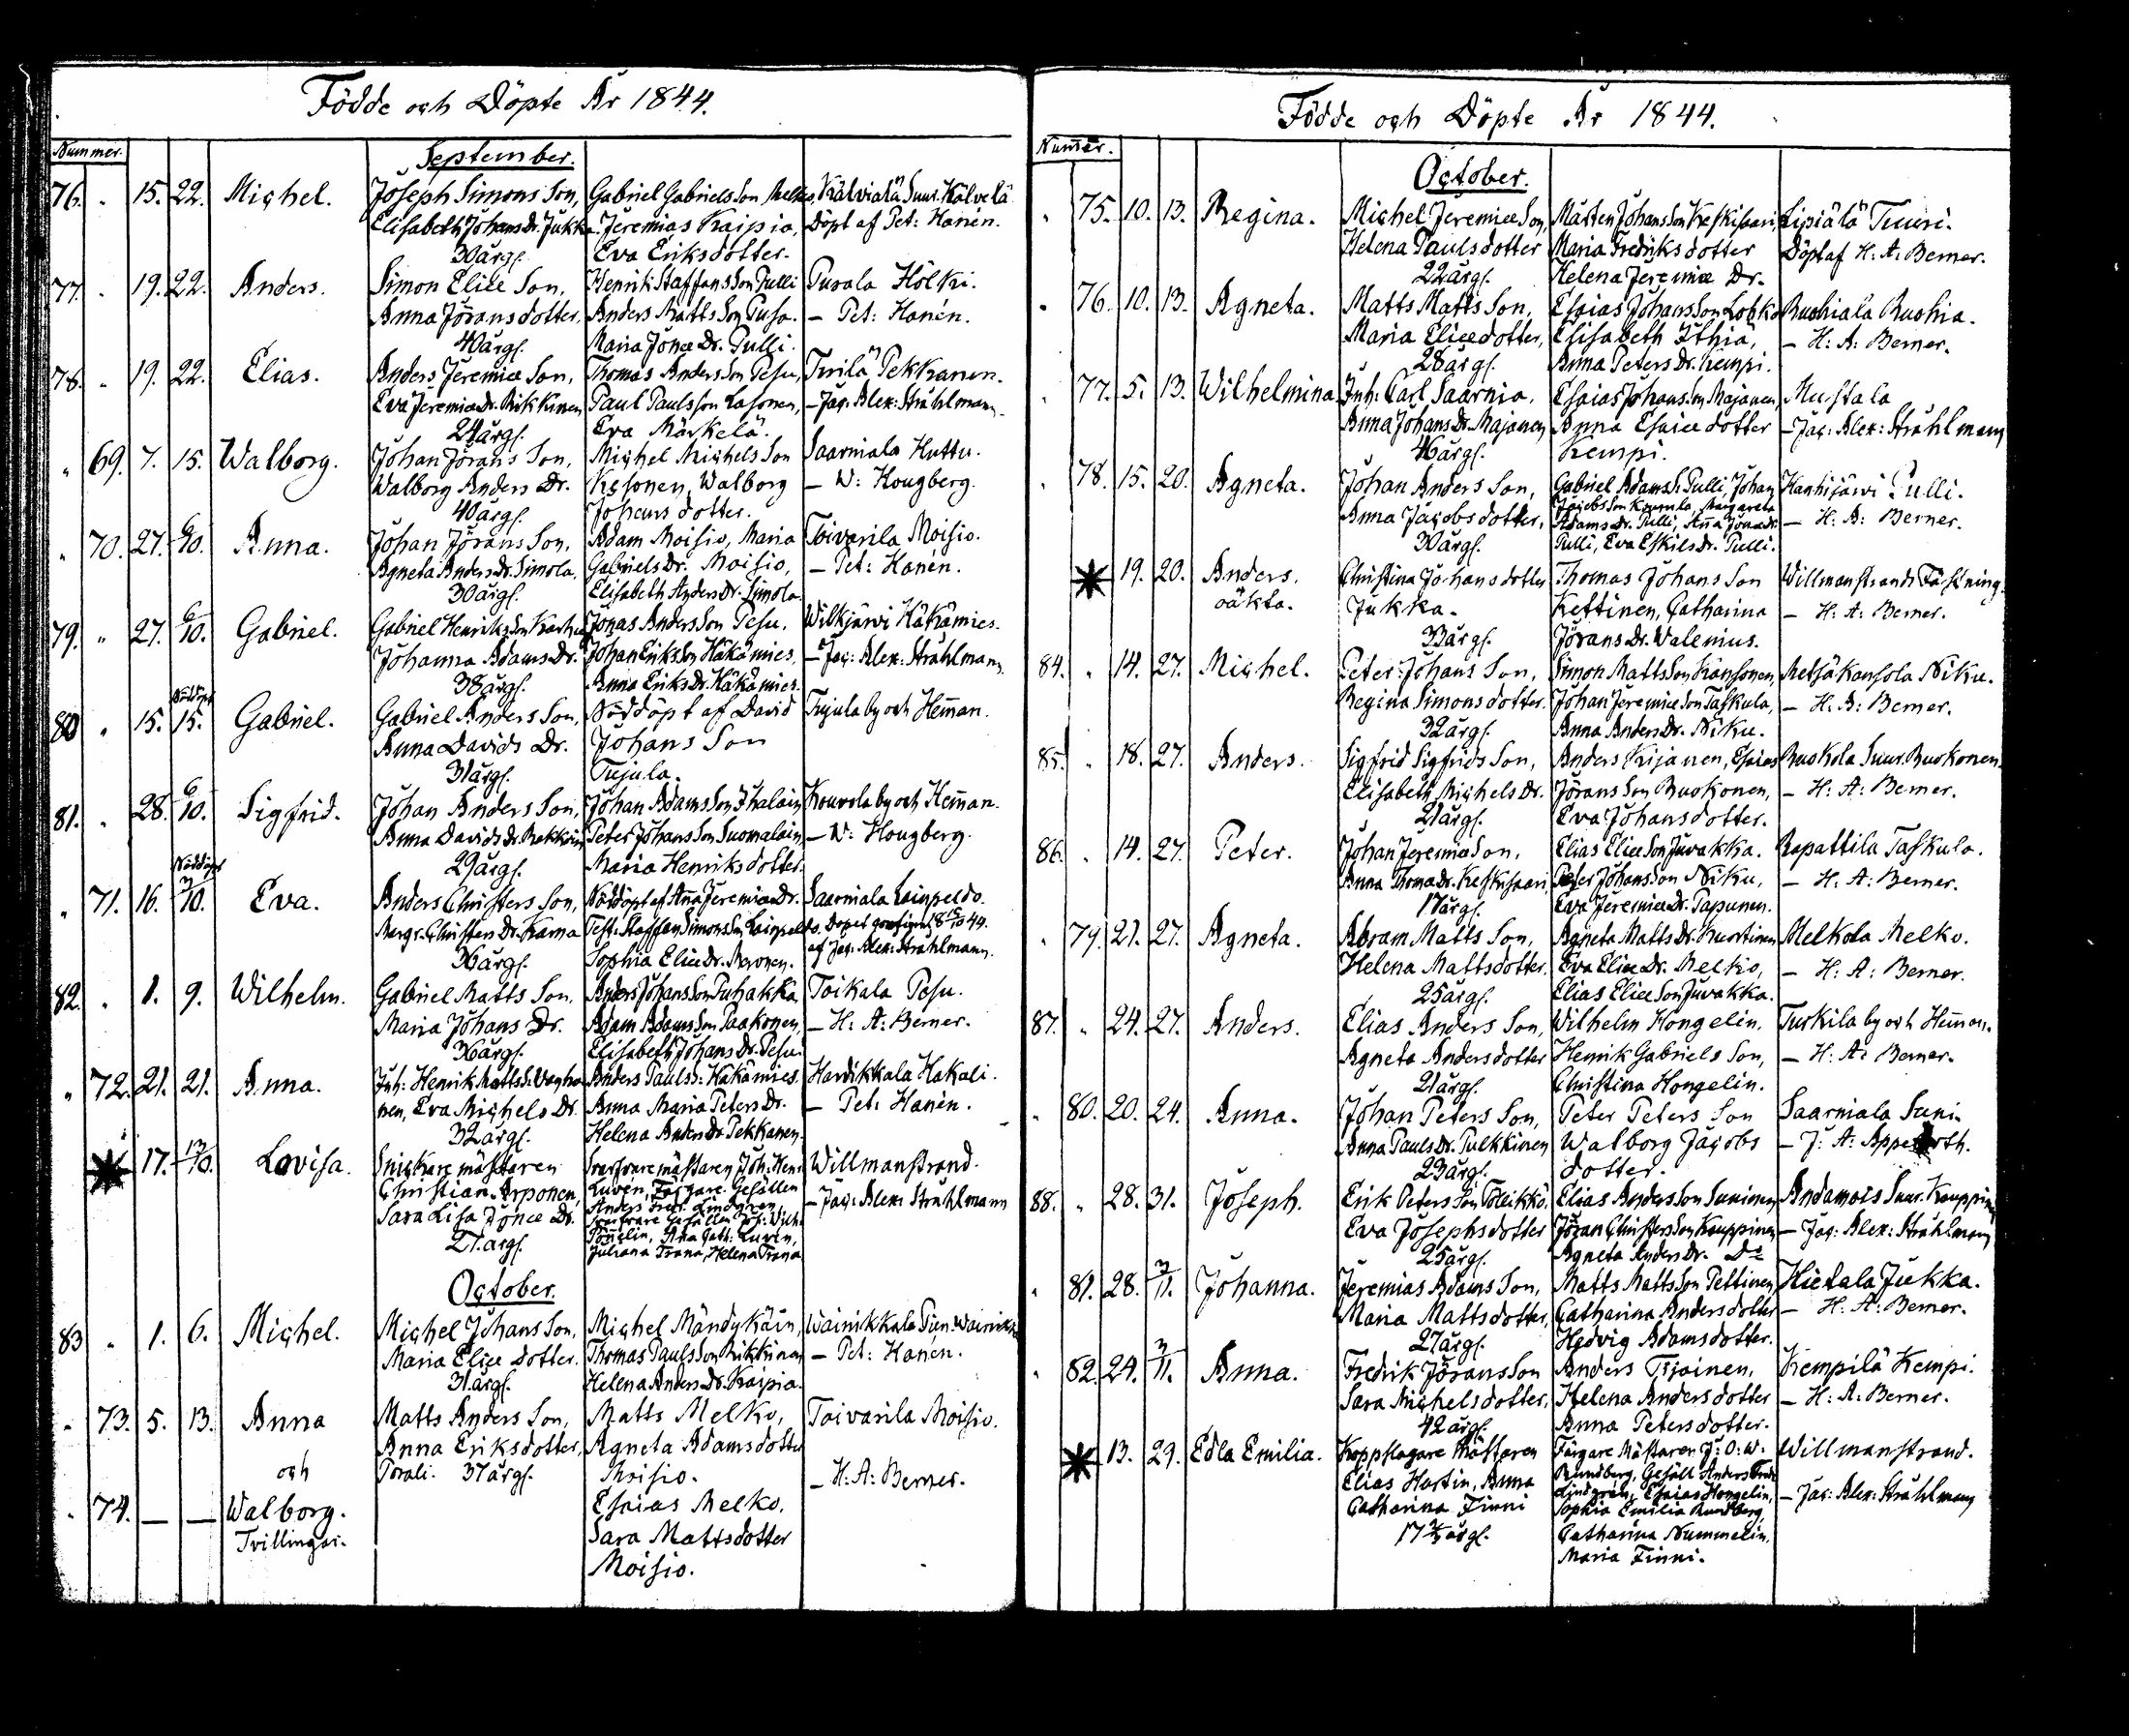 Födde och Döpte År 1844.
Nummer.
September.
76. " 15. 22. Michel. Joseph Simons Son, Gabriel Gabriels Son Melko, Kälviälä Suur-Kälvelä
Elisabeth Johans Dr. Jukka. Jeremias Kaipia, Döpt af Pet: Hanén.
30 årgs. Eva Eriksdotter.
77. " 19. 22. Anders. Simon Eliæ Son, Henrik Staffans Son Pulli Purala Hölki.
Anna Jöransdotter, Anders Matts Son Pusa. – Pet: Hanén.
40 årgs. Maria Jonæ Dr. Pulli.
78. " 19. 22. Elias. Anders Jeremiæ Son, Thomas Anders Son Pesu, Turila Pekkanen.
Eva Jeremiæ Dr. Rikkinen Paul Paulsson Lasonen, – Jac: Alex: Stråhlmann.
24 årgs. Eva Märkelä.
" 69. 7. 15. Walborg. Johan Jörans Son, Michel Michels Son Saarniala Huttu.
Walborg Anders Dr. Kesonen, Walborg – W: Hougberg.
40 årgs. Johans dotter.
" 70. 27. 6/10. Anna. Johan Jörans Son, Adam Moisio, Maria Toivarila Moisio.
Agneta Anders Dr. Simola, Gabriels Dr. Moisio, – Pet: Hanén.
30 årgs. Elisabeth Anders Dr. Simola.
79. " 27. 6/10. Gabriel. Gabriel Henriks Son Karhu Jonas Anders Son Pesu. Wilkjärvi Häkämies.
Johanna Adams Dr. Johan Eriks Son Häkämies, – Jac: Alex: Stråhlmann.
38 årgs. Anna Eriks Dr. Häkämies.
80 " 15. Nöddöpt 15. Gabriel. Gabriel Anders Son, Nöddöpt af David Tujula by och Heman.
Anna Davids Dr. Johans Son
31 årgs. Tujula.
81. " 28. 6/10. Sigfrid. Johan Anders Son, Johan Adams Son Ihalain Kouvola by och Heman.
Anna Davids Dr. Rekkoin Peter Johans Son Suomalain, – W: Hougberg.
29 årgs. Maria Henriks dotter.
" 71. 16. Nöddöpt /10. Eva. Anders Christers Son, Nöddöpt af Ana Jeremiæ Dr. Saarniala Lainpelto.
Margr. Christers Dr. Karna Test: Staffan Simons Son Lainpelto.
36 årgs. Sophia Eliæ Dr. Meronen. af Jac: Alex: Stråhlmann.
82. " 1. 9. Wilhelm. Gabriel Matts Son, Anders Johans Son Puhakka Toikala Pesu.
Maria Johans Dr. Adam Adams Son Paakonen, – H: A: Berner.
36 årgs. Elisabeth Johans Dr. Pesu.
" 72. 21. 21. Anna. Inh: Henrik Matts S. Wagho Anders Pauls S: Häkämies. Hardikkala Hakali.
nen, Eva Michels Dr. Anna Maria Peters Dr. – Pet: Hanén.
32 årgs. Helena Anders Dr. Pekkanen.
17. 13/10. Lovisa. Snickare mästaren Svarfvare mästaren Joh: Henr: Willmanstrand.
Christian Arponen, Luvén, Färgare Gesällen – Jac: Alex: Stråhlmann
Sara Lisa Jonæ Dr. Anders Fredr. Lindgren,
27. årgs. Svarfvare Gesällen Joh: Wilh:
Ana Cath: Luvén,
Juliana Trana, Helena Trana
October.
83 " 1. 6. Michel. Michel Johans Son, Michel Mändykäin, Wainikkala Pien-Wainikka
Maria Eliæ dotter. Thomas Pauls Son Rikkinen – Pet: Hanén.
31 årgs. Helena Anders Dr. Kaipia.
" 73. 5. 13. Anna Matts Anders Son, Matts Melko, Toivarila Moisio.
Anna Eriksdotter, Agneta Adamsdotter
och Porali. 37 årgs. Moisio. – H: A: Berner.
" 74. — — Walborg. Esaias Melko,
Tvillingar. Sara Mattsdotter
Moisio.
Födde och Döpte År 1844.
Numer.
October.
" 75. 10. 13. Regina. Michel Jeremiæ Son, Mårten Johans Son Keskisaari, Lipiälä Tuuri.
Helena Paulsdotter Maria Fredriksdotter Döpt af H: A: Berner.
22 årgs. Helena Jeremiæ Dr.
" 76. 10. 13. Agneta. Matts Matts Son, Esaias Johans Son Lotko Ruohiala Ruohia.
Maria Eliæ dotter, Elisabeth Ithiä, – H: A: Berner.
28 årgs. Anna Peters Dr. Kempi.
" 77. 5. 13. Wilhelmina Inh: Carl Saarnio, Esaias Johans Son Majanen, Mustala
Anna Johans Dr. Majanen Anna Esaiæ dotter – Jac: Alex: Stråhlmann
46 årgs. Kempi.
" 78. 15. 20. Agneta. Johan Anders Son, Gabriel Adams S. Pulli, Johan Hanhijärvi Pulli.
Anna Jacobsdotter, Jacobs Son Kounola, Margareta
Adams Dr. Pulli, Ana Jonæ Dr. – H: A: Berner.
30 årgs. Pulli, Eva Eskils Dr. Pulli.
19. 20. Anders. Christina Johans dotter Thomas Johans Son Willmanstrands Fästning.
oäkta. Jukka. Kettinen, Catharina – H: A: Berner.
33 årgs. Jörans Dr. Walenius.
84. " 14. 27. Michel. Peter Johans Son, Simon Matts Son Kansonen, Metsäkansola Niku.
Regina Simonsdotter. Johan Jeremiæ Son Taskula, – H: A: Berner.
32 årgs. Anna Anders Dr. Niku.
85. " 18. 27. Anders. Sigfrid Sigfrids Son, Anders Kijanen, Esaias Ruokola Suur-Ruokonen.
Elisabeth Michels Dr. Jörans Son Ruokonen, – H: A: Berner.
21 årgs. Eva Johansdotter.
86. " 14. 27. Peter. Johan Jeremiæ Son, Elias Eliæ Son Juvakka. Rapattila Taskula.
Anna Thomæ Dr. Keskisaari Peter Johans Son Niku, – H: A: Berner.
17 årgs. Eva Jeremiæ Dr. Tapanen.
" 79. 21. 27. Agneta. Abram Matts Son, Agneta Matts Dr. Kuortinen Melkola Melko.
Helena Mattsdotter, Eva Eliæ Dr. Melko, – H: A: Berner.
25 årgs. Elias Eliæ Son Juvakka.
87. " 24. 27. Anders. Elias Anders Son, Wilhelm Hongelin, Turkila by och Heman.
Agneta Andersdotter Henrik Gabriels Son, – H: A: Berner.
21 årgs. Christina Hongelin.
" 80. 20. 24. Anna. Johan Peters Son, Peter Peters Son Saarniala Suni.
Anna Pauls Dr. Pulkkinen Walborg Jacobs – J: A:
23 årgs. dotter.
88. " 28. 31. Joseph. Erik Peters Son Pollikkö. Elias Anders Son Suninen Andamois Suur-Kauppinen
Eva Josephsdotter Jöran Christers Son Kauppinen – Jac: Alex: Stråhlmann
25 årgs. Agneta Anders Dr. Do
" 81. 28. 3/11. Johanna. Jeremias Adams Son, Matts Matts Son Pettinen Hietala Jukka.
Maria Mattsdotter, Catharina Andersdotter – H: A: Berner.
27 årgs. Hedvig Adamsdotter.
" 82. 24. 3/11. Anna. Fredrik Jörans Son Anders Tijainen, Kempilä Kempi.
Sara Michelsdotter, Helena Andersdotter – H: A: Berner.
42 årgs. Anna Petersdotter.
13. 29. Edla Emilia. Kopparslagare Mästaren Färgare Mästaren J: O: W: Willmanstrand.
Elias Hartin, Anna Rundberg, Gesäll Anders Fredr
Catharina Finni Lindgren, Esaias Hongelin, – Jac: Alex: Stråhlmann
Sophia Emilia Rundberg,
17 ¾ årgs. Catharina Nummelin,
Maria Finni.